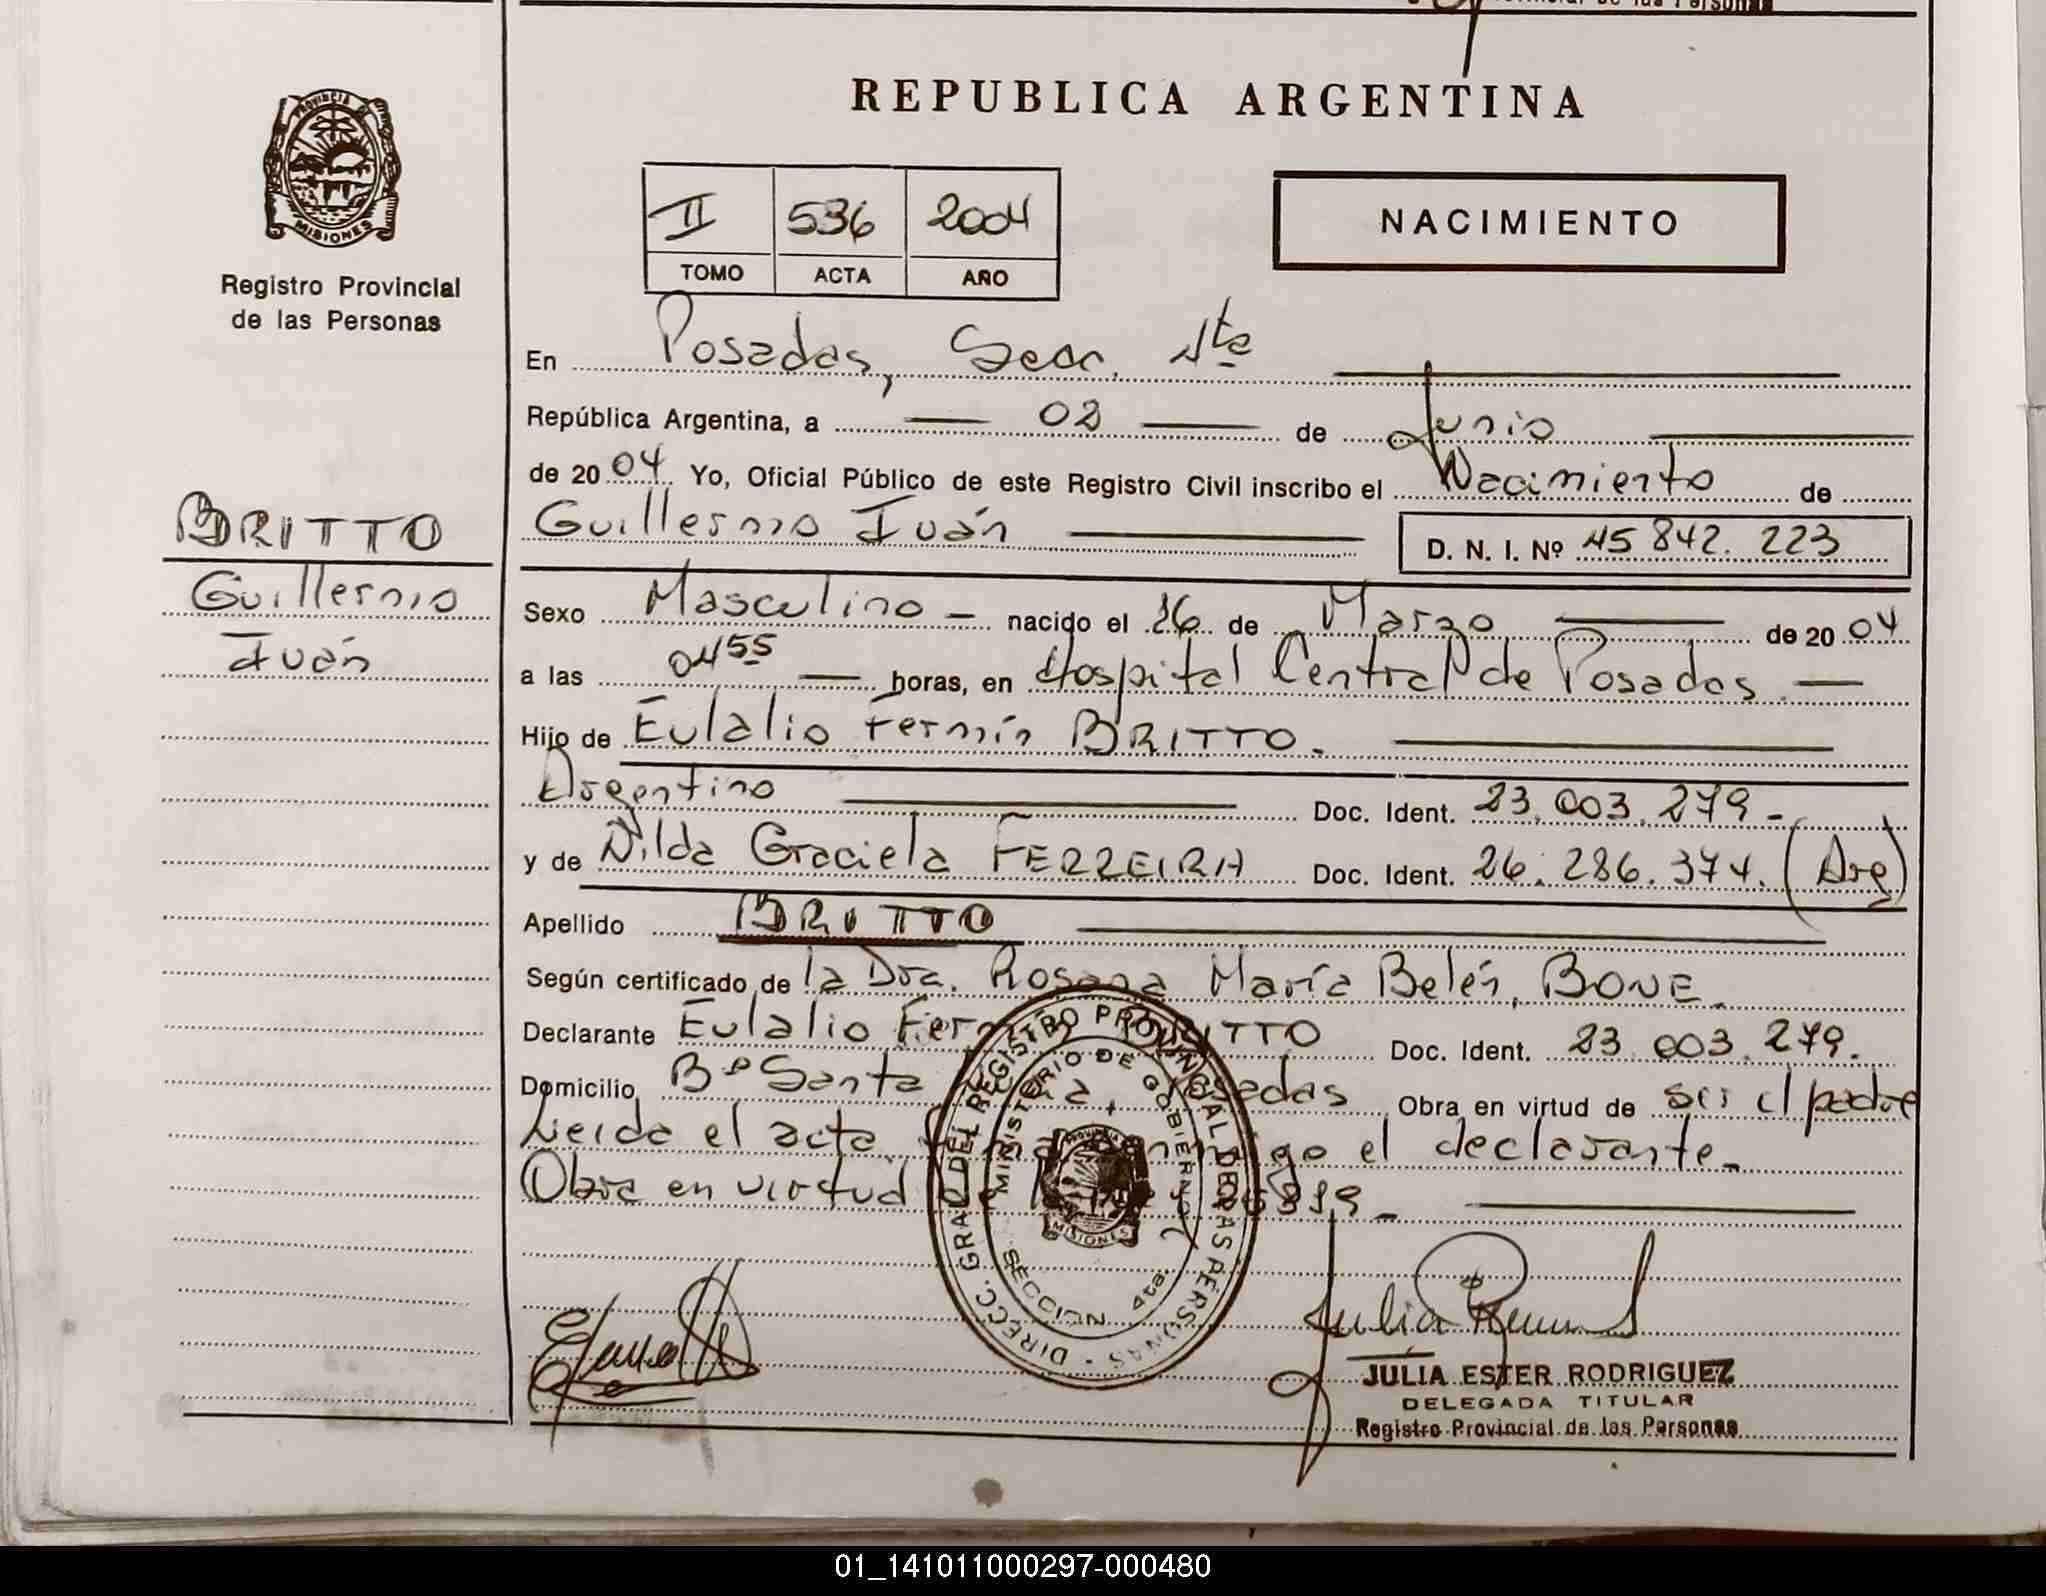 Provincial de las Personas
PROVINCIA DE
MISIONES
Registro Provincial
de las Personas
REPUBLICA ARGENTINA
II 536 2004
TOMO ACTA AÑO
NACIMIENTO
En Posadas, Secc. 4ta
República Argentina, a 02 de Junio
de 2004 Yo, Oficial Público de este Registro Civil inscribo el Nacimiento de
Guillermo Iván D. N. I. Nº 45 842. 223
BRITTO
Guillermo
Iván
Sexo Masculino - nacido el 26 de Marzo de 2004
a las 04 55 horas, en Hospital Central de Posadas.
Hijo de Eulalio Fermín BRITTO.
Argentino Doc. Ident. 23.003.279-
y de Nilda Graciela FERREIRA Doc. Ident. 26.286.374. (Arg)
Apellido BRITTO
Según certificado de la Dra. Rosana María Belén, BONE.
Declarante Eulalio BRITTO Doc. Ident. 23.003.279.
Domicilio Bº Santa Posadas Obra en virtud de ser el padre
Leida el acta conmigo el declarante.
Obra en virtud
DIRECC. GRAL. DEL REGISTRO PROVINCIAL DE LAS PERSONAS
MINISTERIO DE GOBIERNO
PROVINCIA
MISIONES
SECCION 4ta.
JULIA ESTER RODRIGUEZ
DELEGADA TITULAR
Registro Provincial de las Personas
01_141011000297-000480